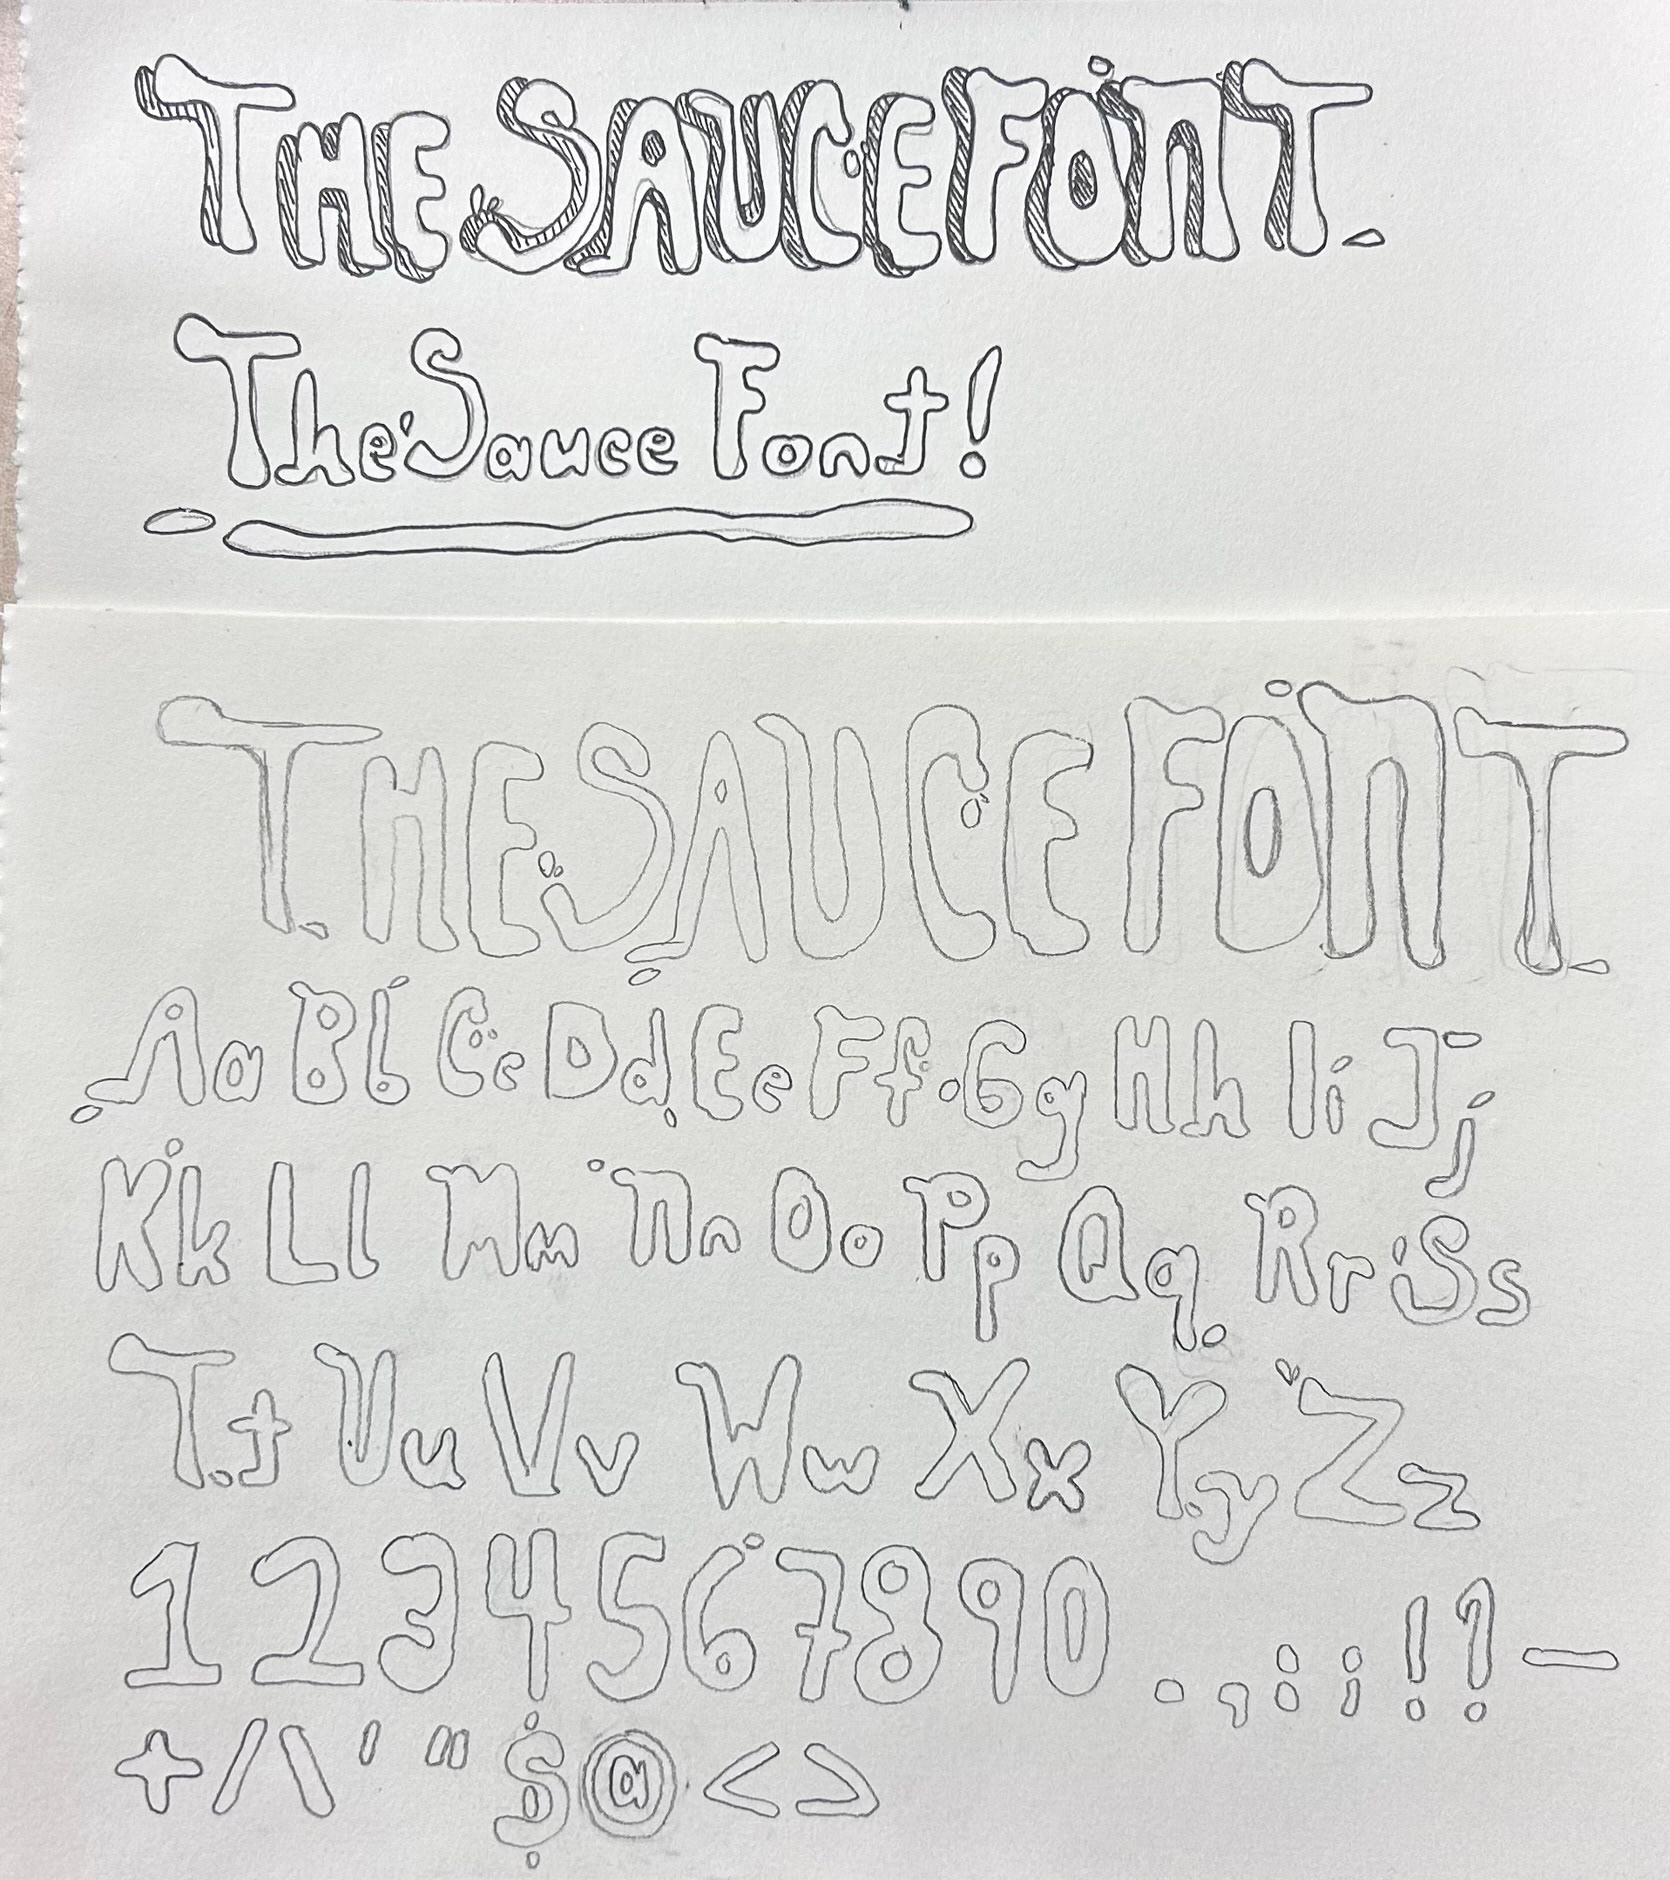 THE SAUCE FONT.
The Sauce Font!
THE SAUCE FONT.
Aa Bb Cc Dd Ee Ff Gg Hh Ii Jj
Kk Ll Mm Nn Oo Pp Qq Rr Ss
Tt Uu Vv Ww Xx Yy Zz
1 2 3 4 5 6 7 8 9 0 . , : ; ! ? -
+ / \ ' " $ @ < >